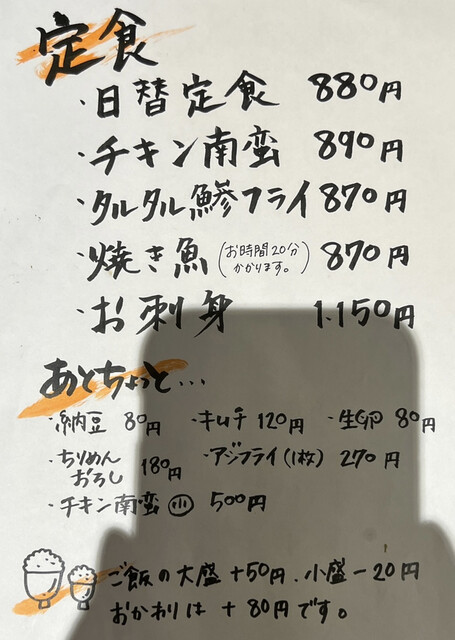 定食
・日替定食 880円
・チキン南蛮 890円
・タルタル鯵フライ 870円
・焼き魚(お時間20分かかります。) 870円
・お刺身 1.150円
あとちょっと…
・納豆 80円 ・キムチ 120円 ・生卵 80円
・ちりめんおろし 180円 ・アジフライ(1枚) 270円
・チキン南蛮 小 500円
ご飯の大盛+50円、小盛-20円
おかわりは+80円です。